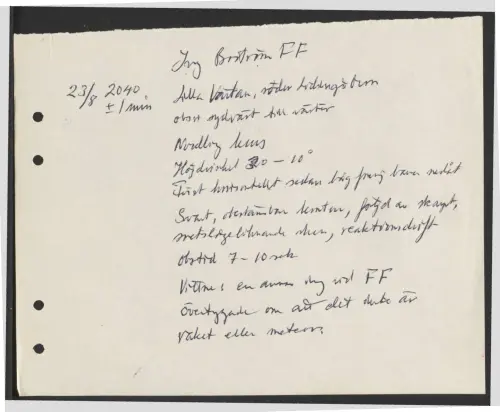 Ing Boström FF
23/8 2040
± 1 min
Lilla Värtan, söder Lidingöbron
obs sydväst till väster
Nordlig kurs
Höjdvinkel 30 – 10°
Först horisontellt sedan båg bana nedåt
Svart, obestämbar kontur, följd av skarpt,
svetslågeliknande sken, reaktionsdrift
obstid 7 – 10 sek
Vittne: en annan ing vid FF
Övertygade om att det icke är
raket eller meteor.